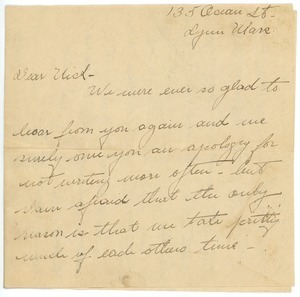 135 Ocean St.
Lynn Mass
Dear Nick-
We were ever so glad to
hear from you again and we
surely owe you an apology for
not writing more often - but
I am afraid that the only
reason is that we take pretty
much of each others time -